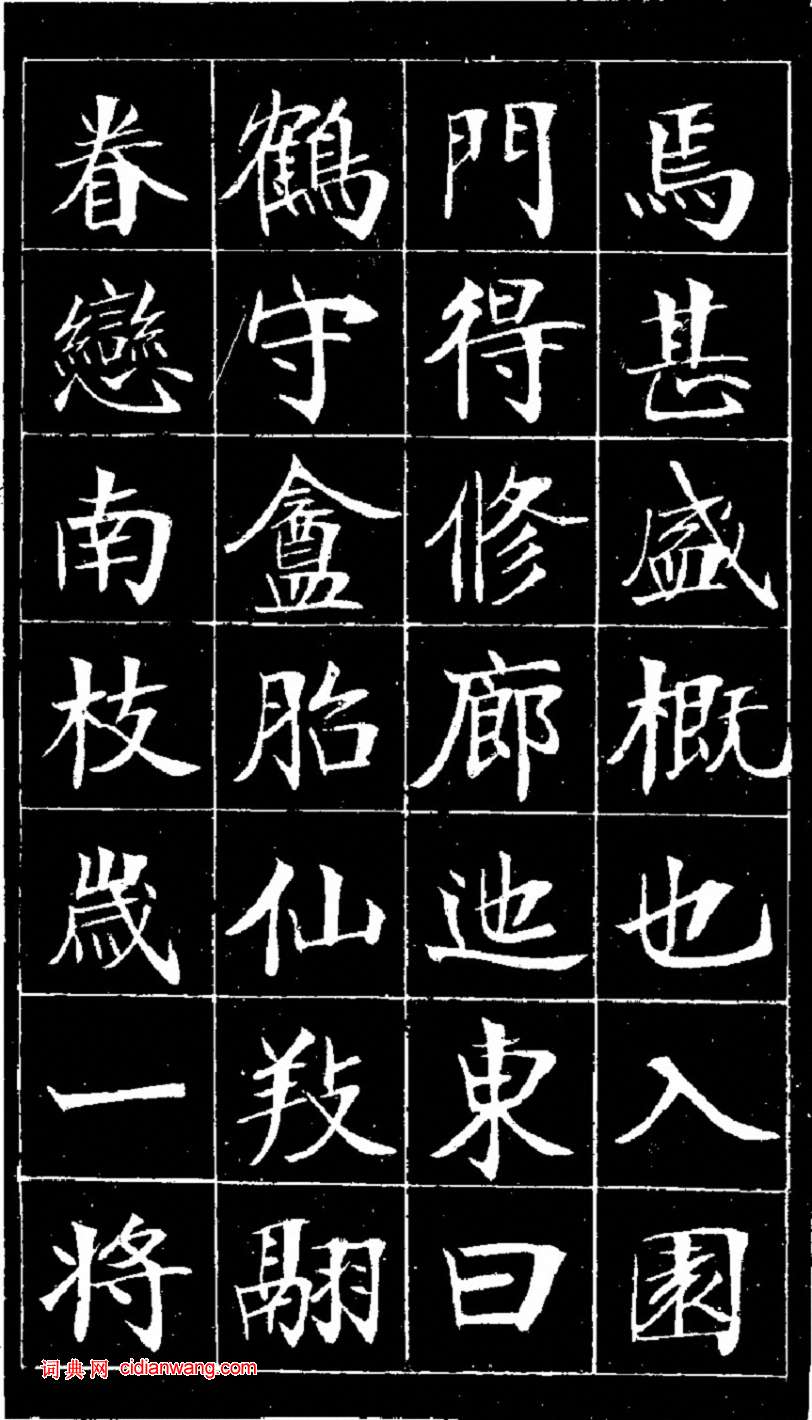 焉甚盛概也入園
門得修廊迤東曰
鶴守盦胎仙羖翮
眷戀南枝歲一将
词典网 cidianwang.com